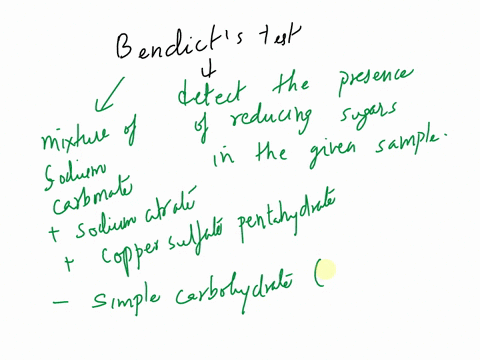 Bendict's test
detect the presence
of reducing sugars
in the given sample.
mixture of
Sodium
carbonate
+ Sodium citrate
+ copper sulfate pentahydrate
- Simple carbohydrate (